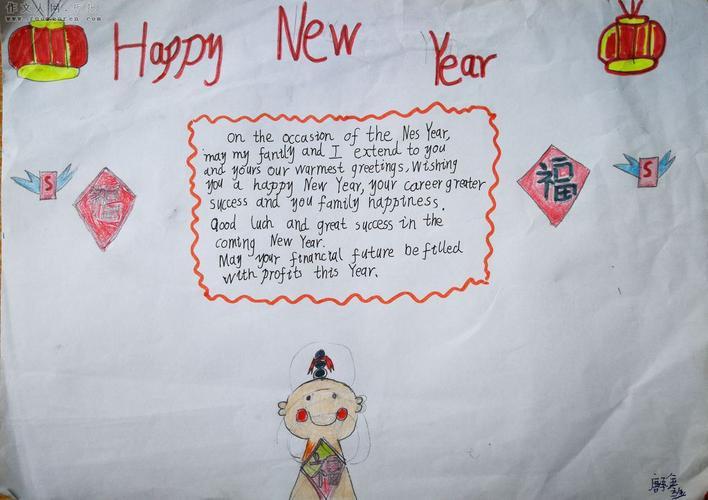 作文人网
www.zuowenren.net
Happy New Year
On the occasion of the Nes Year,
may my fantly and I extend to you
and yours our warmest greetings, wishing
you a happy New Year, your career greater
success and you family happiness.
Good luch and great success in the
coming New Year.
May your financial future be filled
with profits this Year.
S
福
福
S